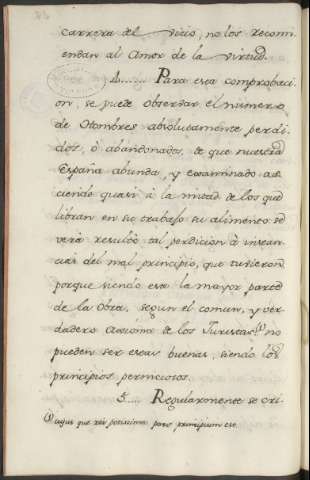 carrera del vicio, no los recomi
endan al Amor de la virtud.
4...... Para esa comprobaci
on, se puede observar el numero
de Hombres absolutamente perdi
dos, ò abandonados, de que nuestra
España abunda, y examinado as
ciendo quasi à la mitad de los que
libran en su trabajo su alimento se
verà resultò tal perdicion à instan
cias del mal principio, que tuvieron
porque siendo esa la mayor parte
de la Obra, segun el comun, y ver
dadero Axioma de los Juristas, no
pueden ser esas buenas, siendo los
principios perniciosos.
5.... Regularmente se cri
cujus que rei potissima pars principium est